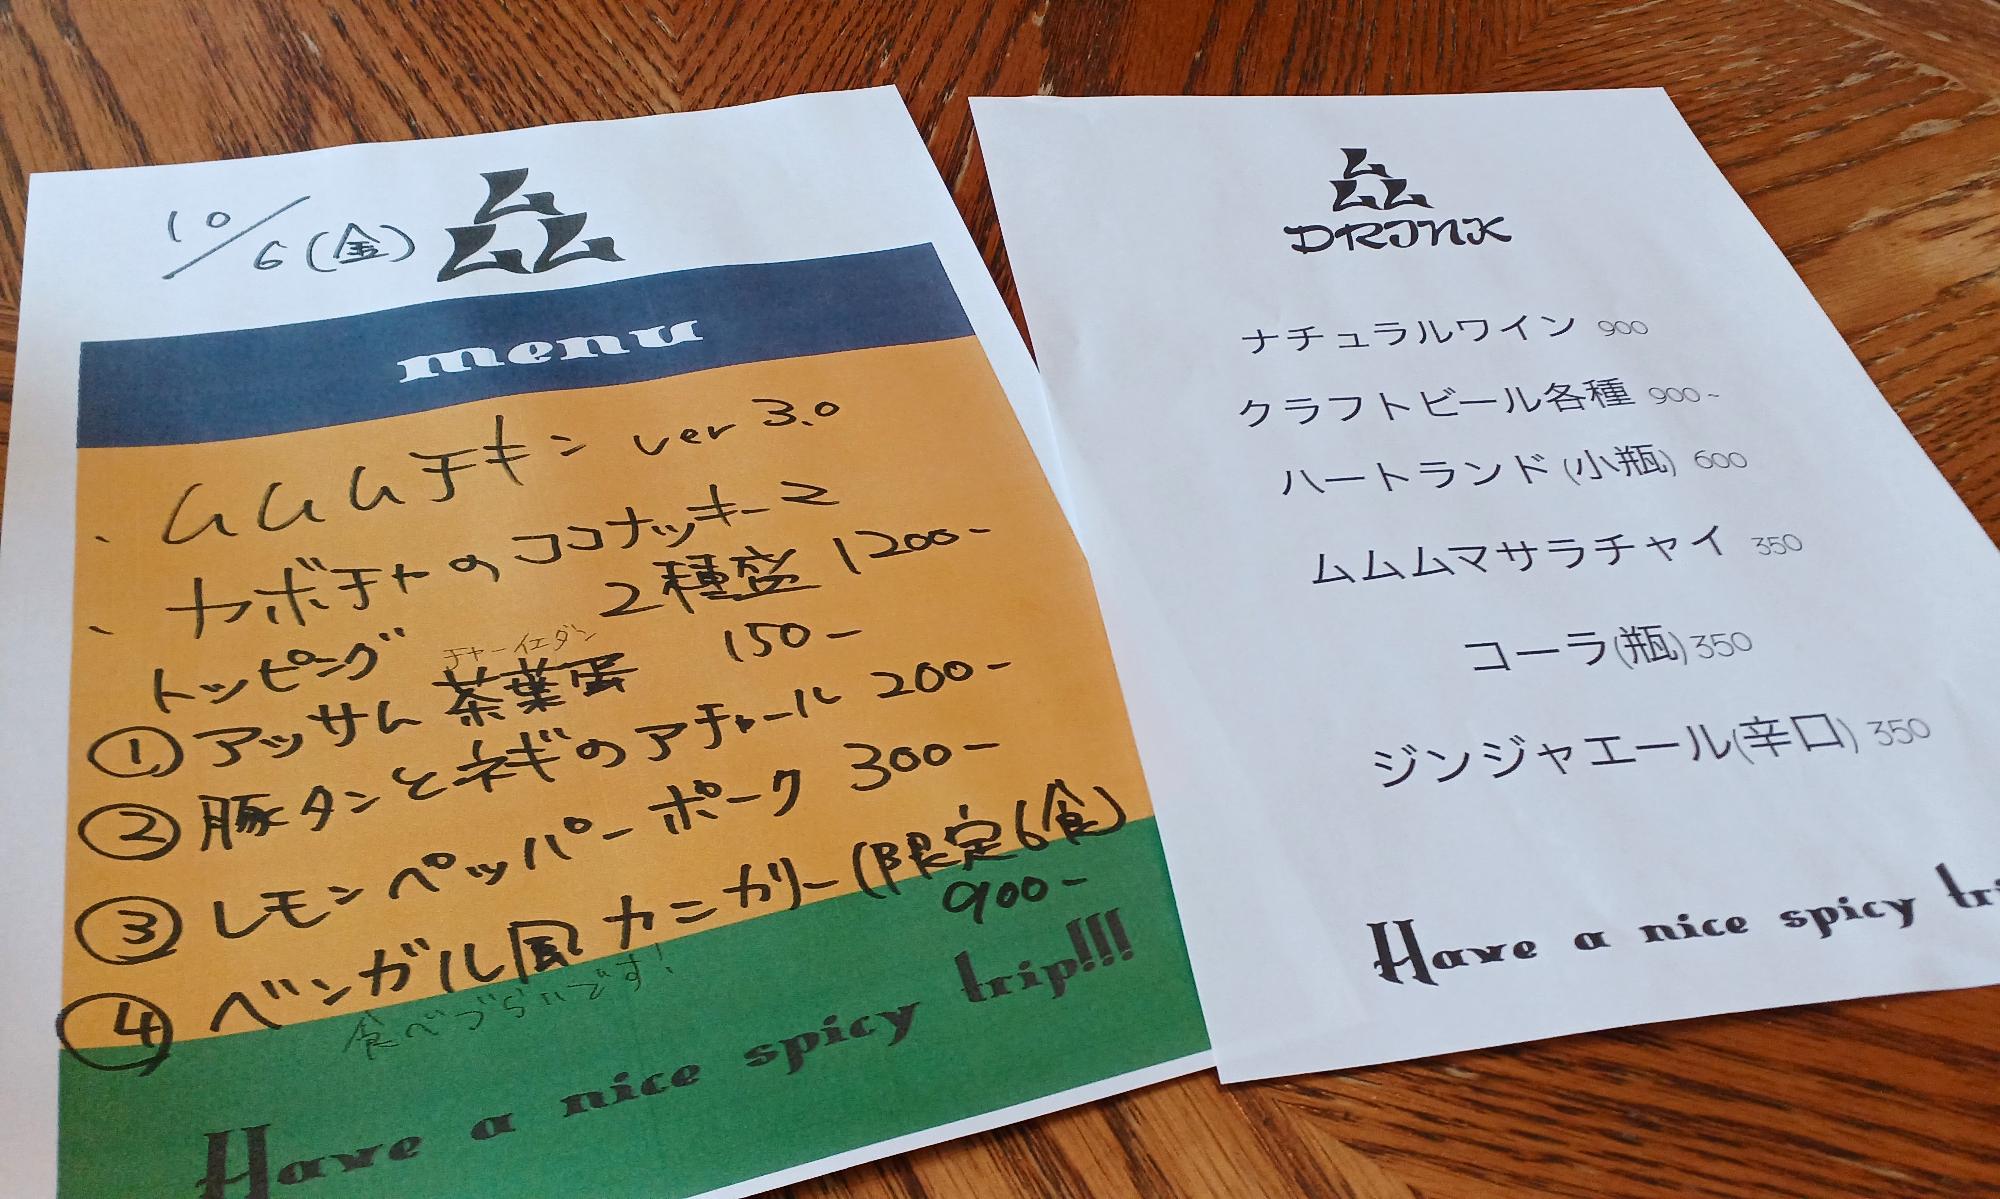 10/6(金)
ム
ムム
menu
、ムムムチキン ver 3.0
、カボチャのココナッキーマ
2種盛 1200-
トッピング
チャーイエダン
① アッサム茶葉蛋 150-
② 豚タンとネギのアチャール 200-
③ レモンペッパーポーク 300-
④ ベンガル風カニカリー(限定6食)
900-
食べづらいです!
Have a nice spicy trip!!!
ム
ムム
DRINK
ナチュラルワイン 900
クラフトビール各種 900~
ハートランド(小瓶) 600
ムムムマサラチャイ 350
コーラ(瓶) 350
ジンジャエール(辛口) 350
Have a nice spicy tri